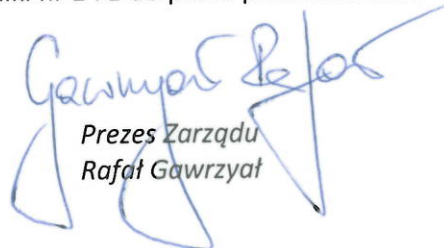 Gawrzyał Rafał
Prezes Zarządu
Rafał Gawrzyał